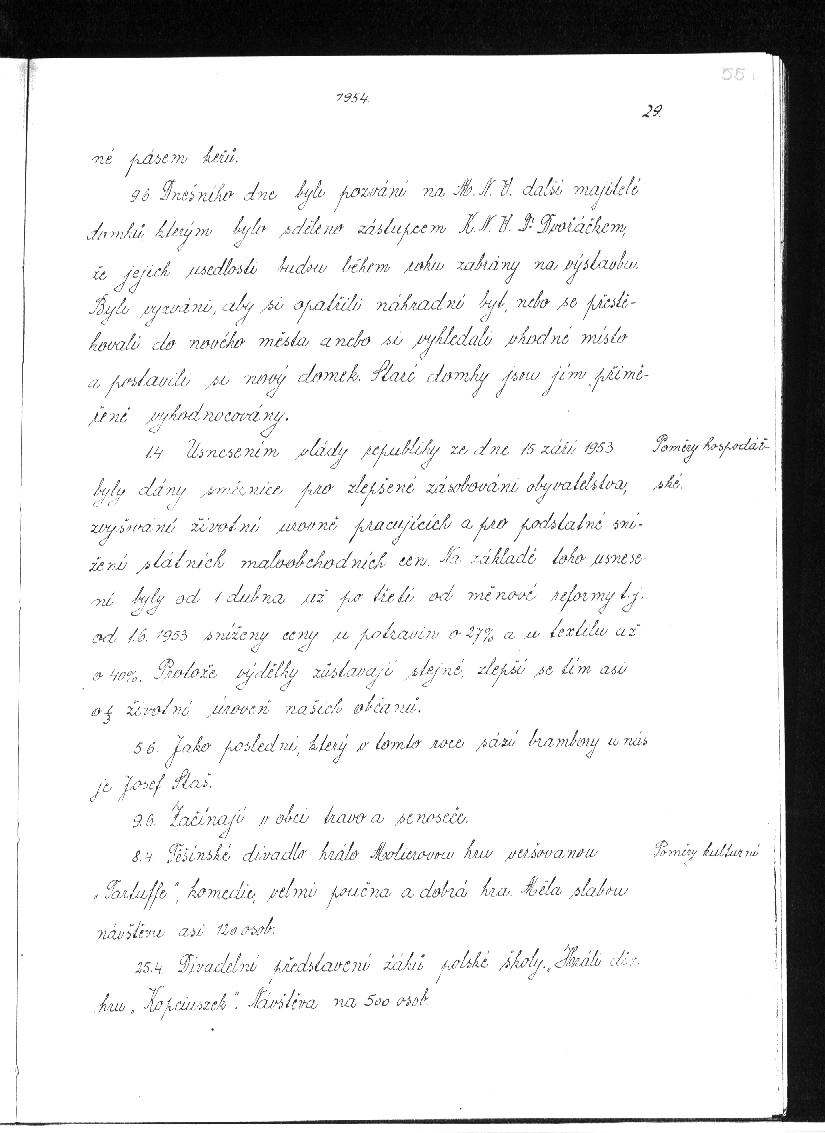 55
1954.
29.
né pásem keřů.
9.6 Dnešního dne byli pozváni na M.N.V. další majitelé
domků kterým bylo sděleno zástupcem K.N.V. Dr Dvořáčkem,
že jejich usedlosti budou během roku zabrány na výstavbu.
Byli vyzváni, aby si opatřili náhradní byt, nebo se přestě-
hovali do nového města anebo si vyhledali vhodné místo
a postavili si nový domek. Staré domky jsou jím přimě-
řeně vyhodnocovány.
1.4 Usnesením vlády republiky ze dne 15 září 1953
Poměry hospodář-
byly dány směrnice pro zlepšené zásobování obyvatelstva,
ské.
zvyšování životní úrovně pracujících a pro podstatné sní-
žení státních maloobchodních cen. Na základě toho usnese
ní byly od 1 dubna už po třetí od měnové reformy t.j.
od 1.6. 1953 sníženy ceny u potravin o 27% a u textilu až
o 40%. Protože výdělky zůstavají stejné, zlepší se tím asi
o 1/3 životní úroveň našich občanů.
5.6. Jako poslední, který v tomto roce sází brambory u nás
je Josef Staš.
9.6. Začínají v obci travo a senoseče.
8.4 Těšínské divadlo hrálo Molierovou hru veršovanou
Poměry kulturní
„Tartuffe", komedie, velmi poučna a dobrá hra. Měla slabou
návštěvu asi 120 osob.
25.4. Divadelní představení žáků polské školy. „Hráli div.
hru „Kopciuszek". Návštěva na 500 osob